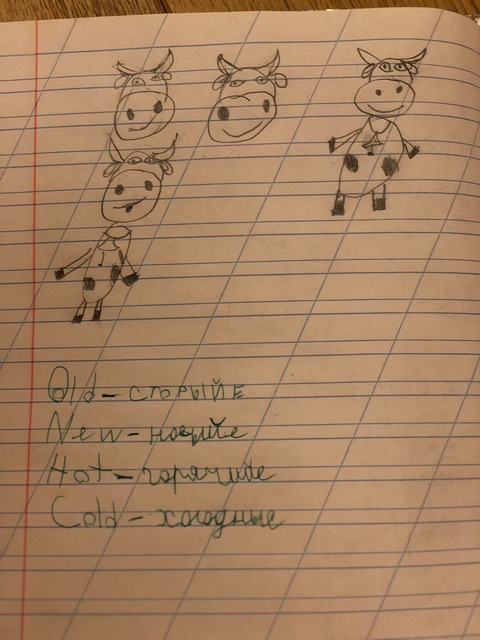 Old – сторыйе
New – новыйе
Hot – горячийе
Cold – холодные